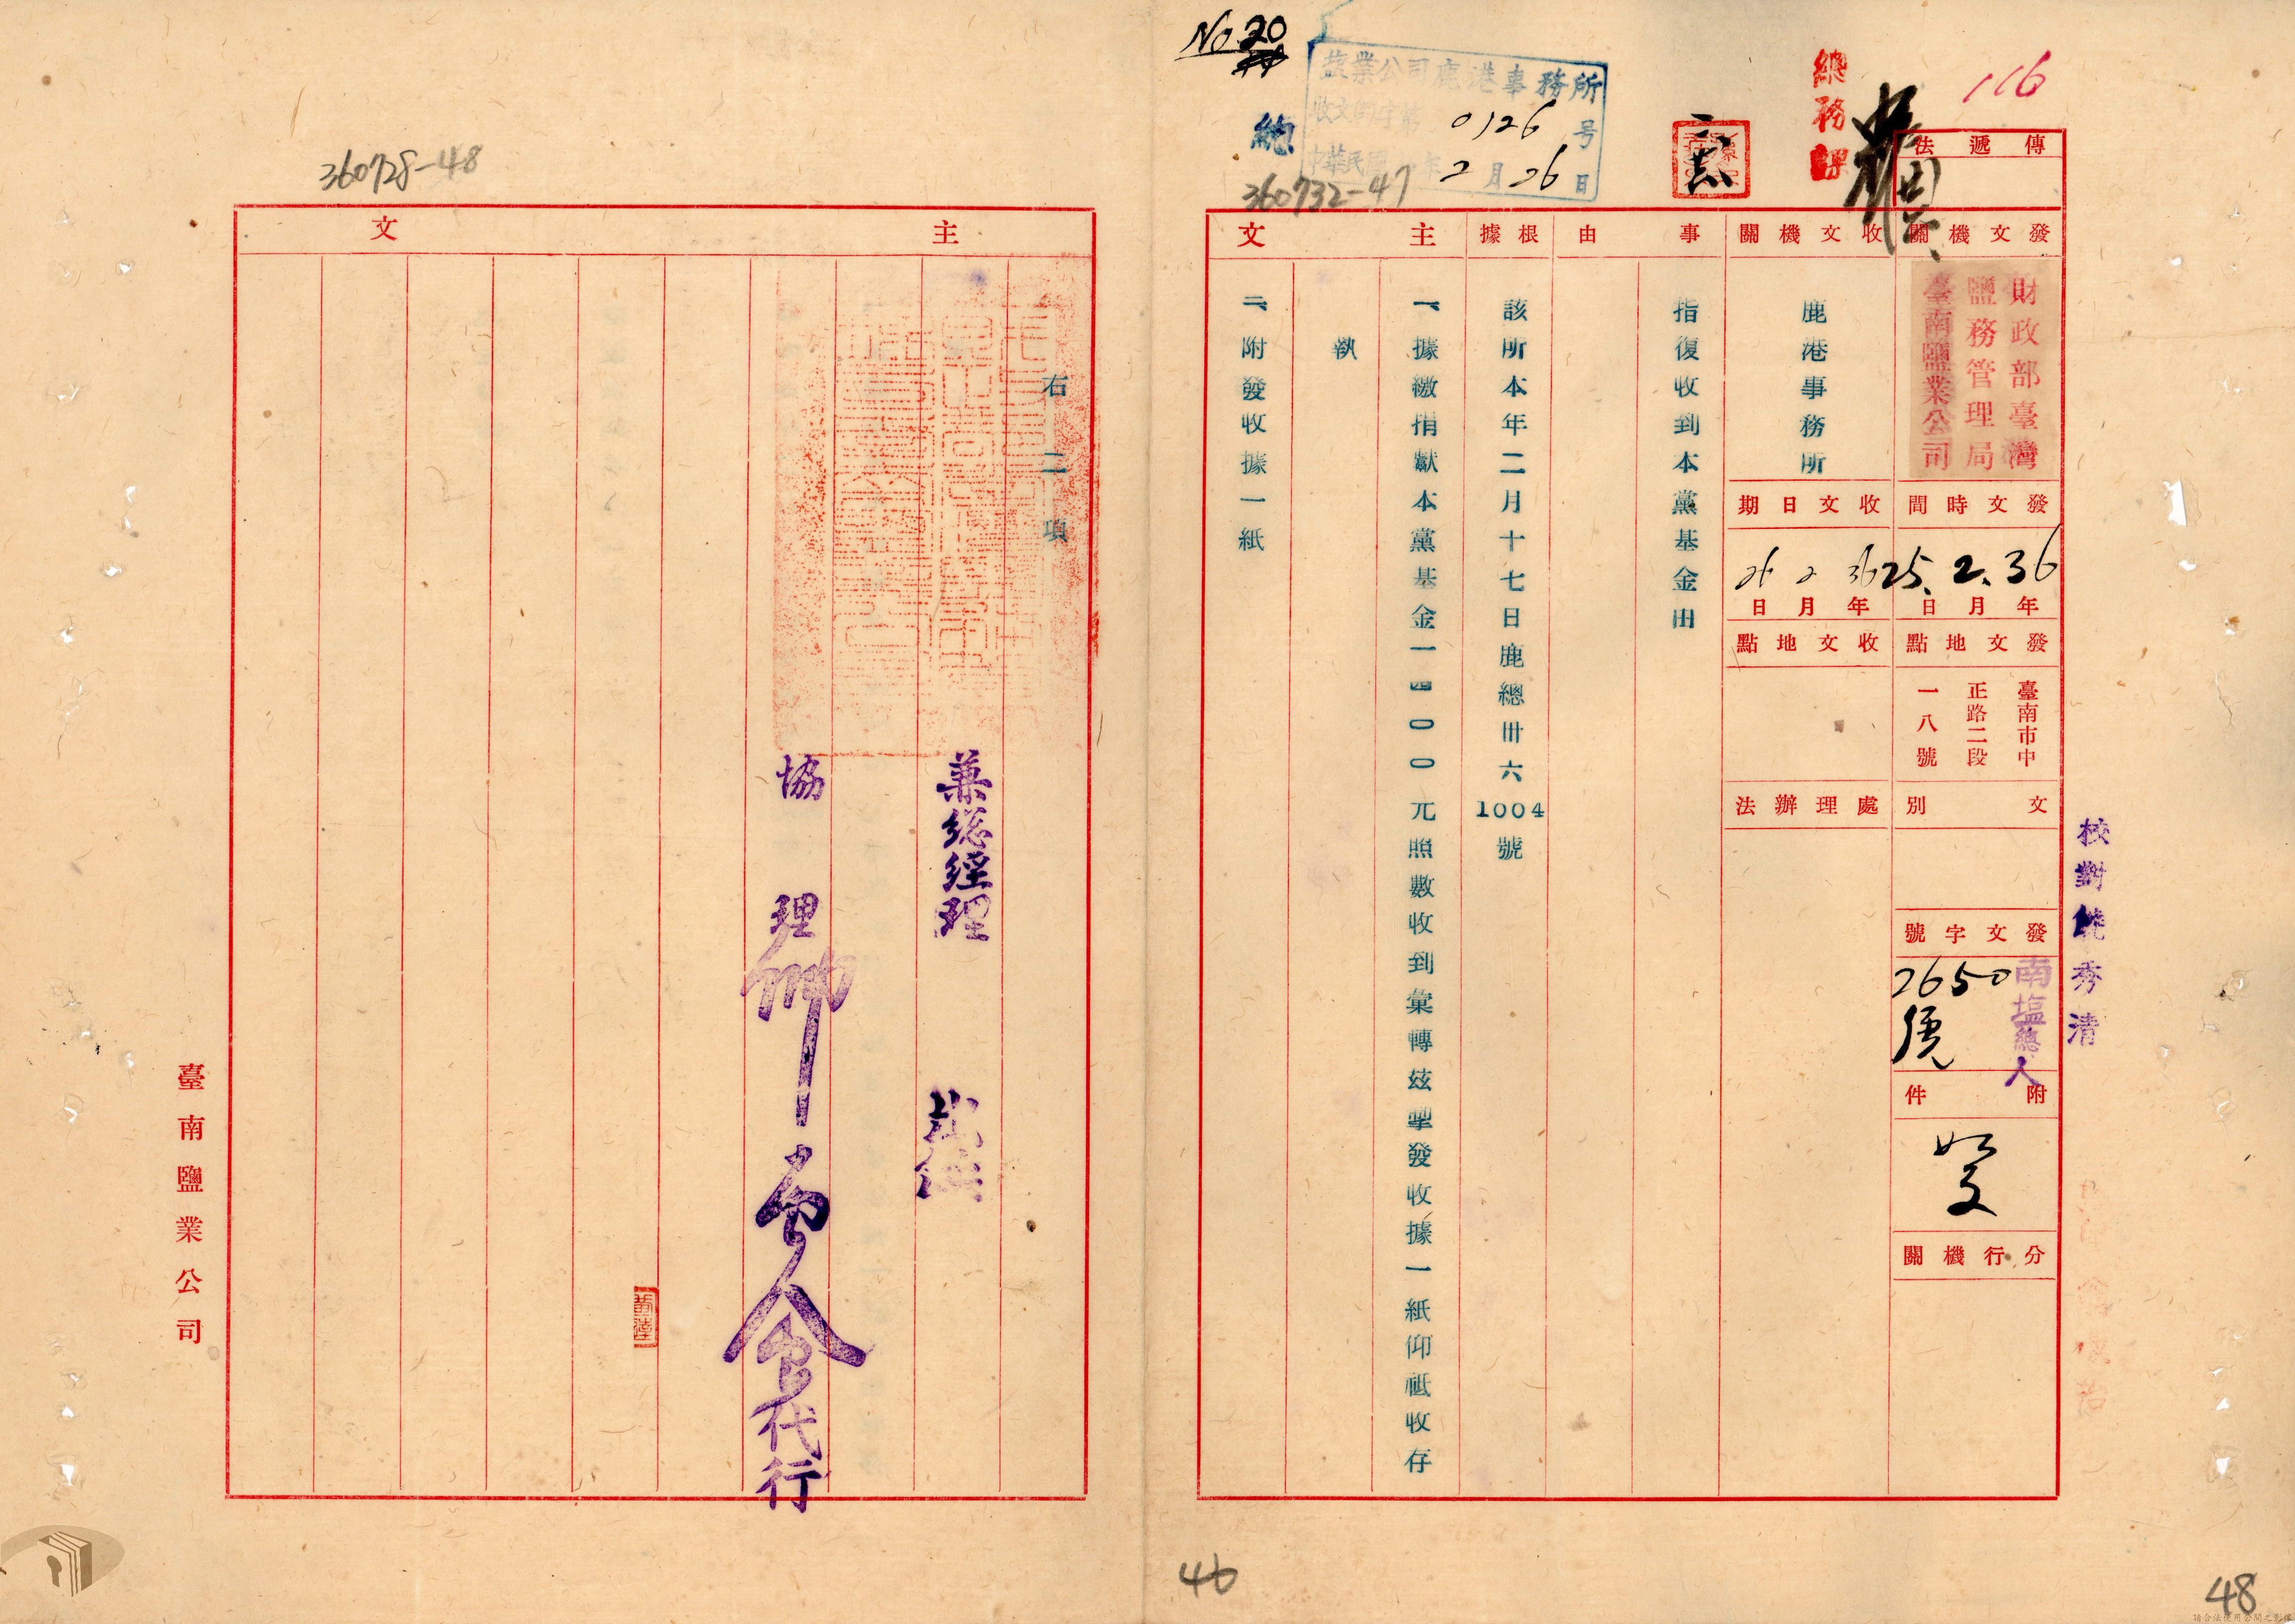 116
總務課
No 20
鹽業公司鹿港事務所
0126号
2月26日
總
360732-47
傳遞法
發文機關
財政部臺灣
鹽務管理局
臺南鹽業公司
發文時間
36 2 25
年月日
發文地點
臺南市中
正路二段
一八號
文別
發文字號
南塩總人
2650號
附件
如文
分行機關
校對
秀清
收文機關
鹿港事務所
收文日期
36 2 26
年月日
收文地點
處理辦法
事由
指復收到本黨基金由
根據
該所本年二月十七日鹿總卅六1004號
主文
一、據繳捐獻本黨基金一四〇〇元照數收到彙轉玆掣發收據一紙仰祗收存
執
二、附發收據一紙
46
48
360728-48
主文
右二項
兼總經理
協理
代行
臺南鹽業公司
請合法使用公開之影像